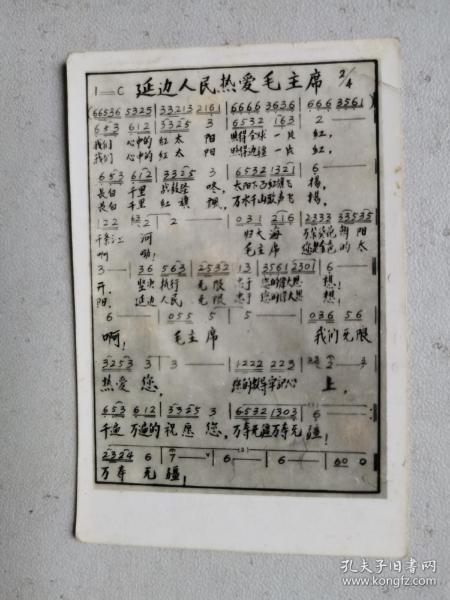 1=C 延边人民热爱毛主席 2/4
(66536 5325 | 33213 2161 | 6666 3636 | 666 3561)
653 612 | 3325 3 | 6532 163 | 2 —
我们 心中的 红太 阳 照得全球 一片 红,
我们 心中的 红太 阳 照得边疆 一片 红,
653 612 | 3325 3 | 6532 1321 | 6 —
长白 千里 战鼓 咚, 太阳下 红旗飞 扬,
长白 千里 红旗 飘, 万水千山歌声飞 扬,
122 2 | 2 — | 031 216 | 2333 33535
千条江 河 归大海 万朵葵花 朝阳
啊 毛主席 您是金色的太
3 — | 36 563 | 2532 13 | 3561 2301 | 6 —
开, 坚决 执行 无限 忠于 您的伟大思 想!
阳, 延边 人民 无限 忠于 您的伟大思 想!
6 — | 055 5 | 5 — | 036 56
啊! 毛主席 我们无限
3253 3 | 3 — | 1222 223 | 2 —
热爱 您, 您的教导牢记心 上,
653 612 | 3325 3 | 6532 1303 | 6 —
千遍 万遍的 祝愿 您, 万寿无疆万寿无 疆!
2324 6 | 7 — | 6 — | 6 — | 60 0
万寿 无 疆!
孔夫子旧书网
www.kongfz.com